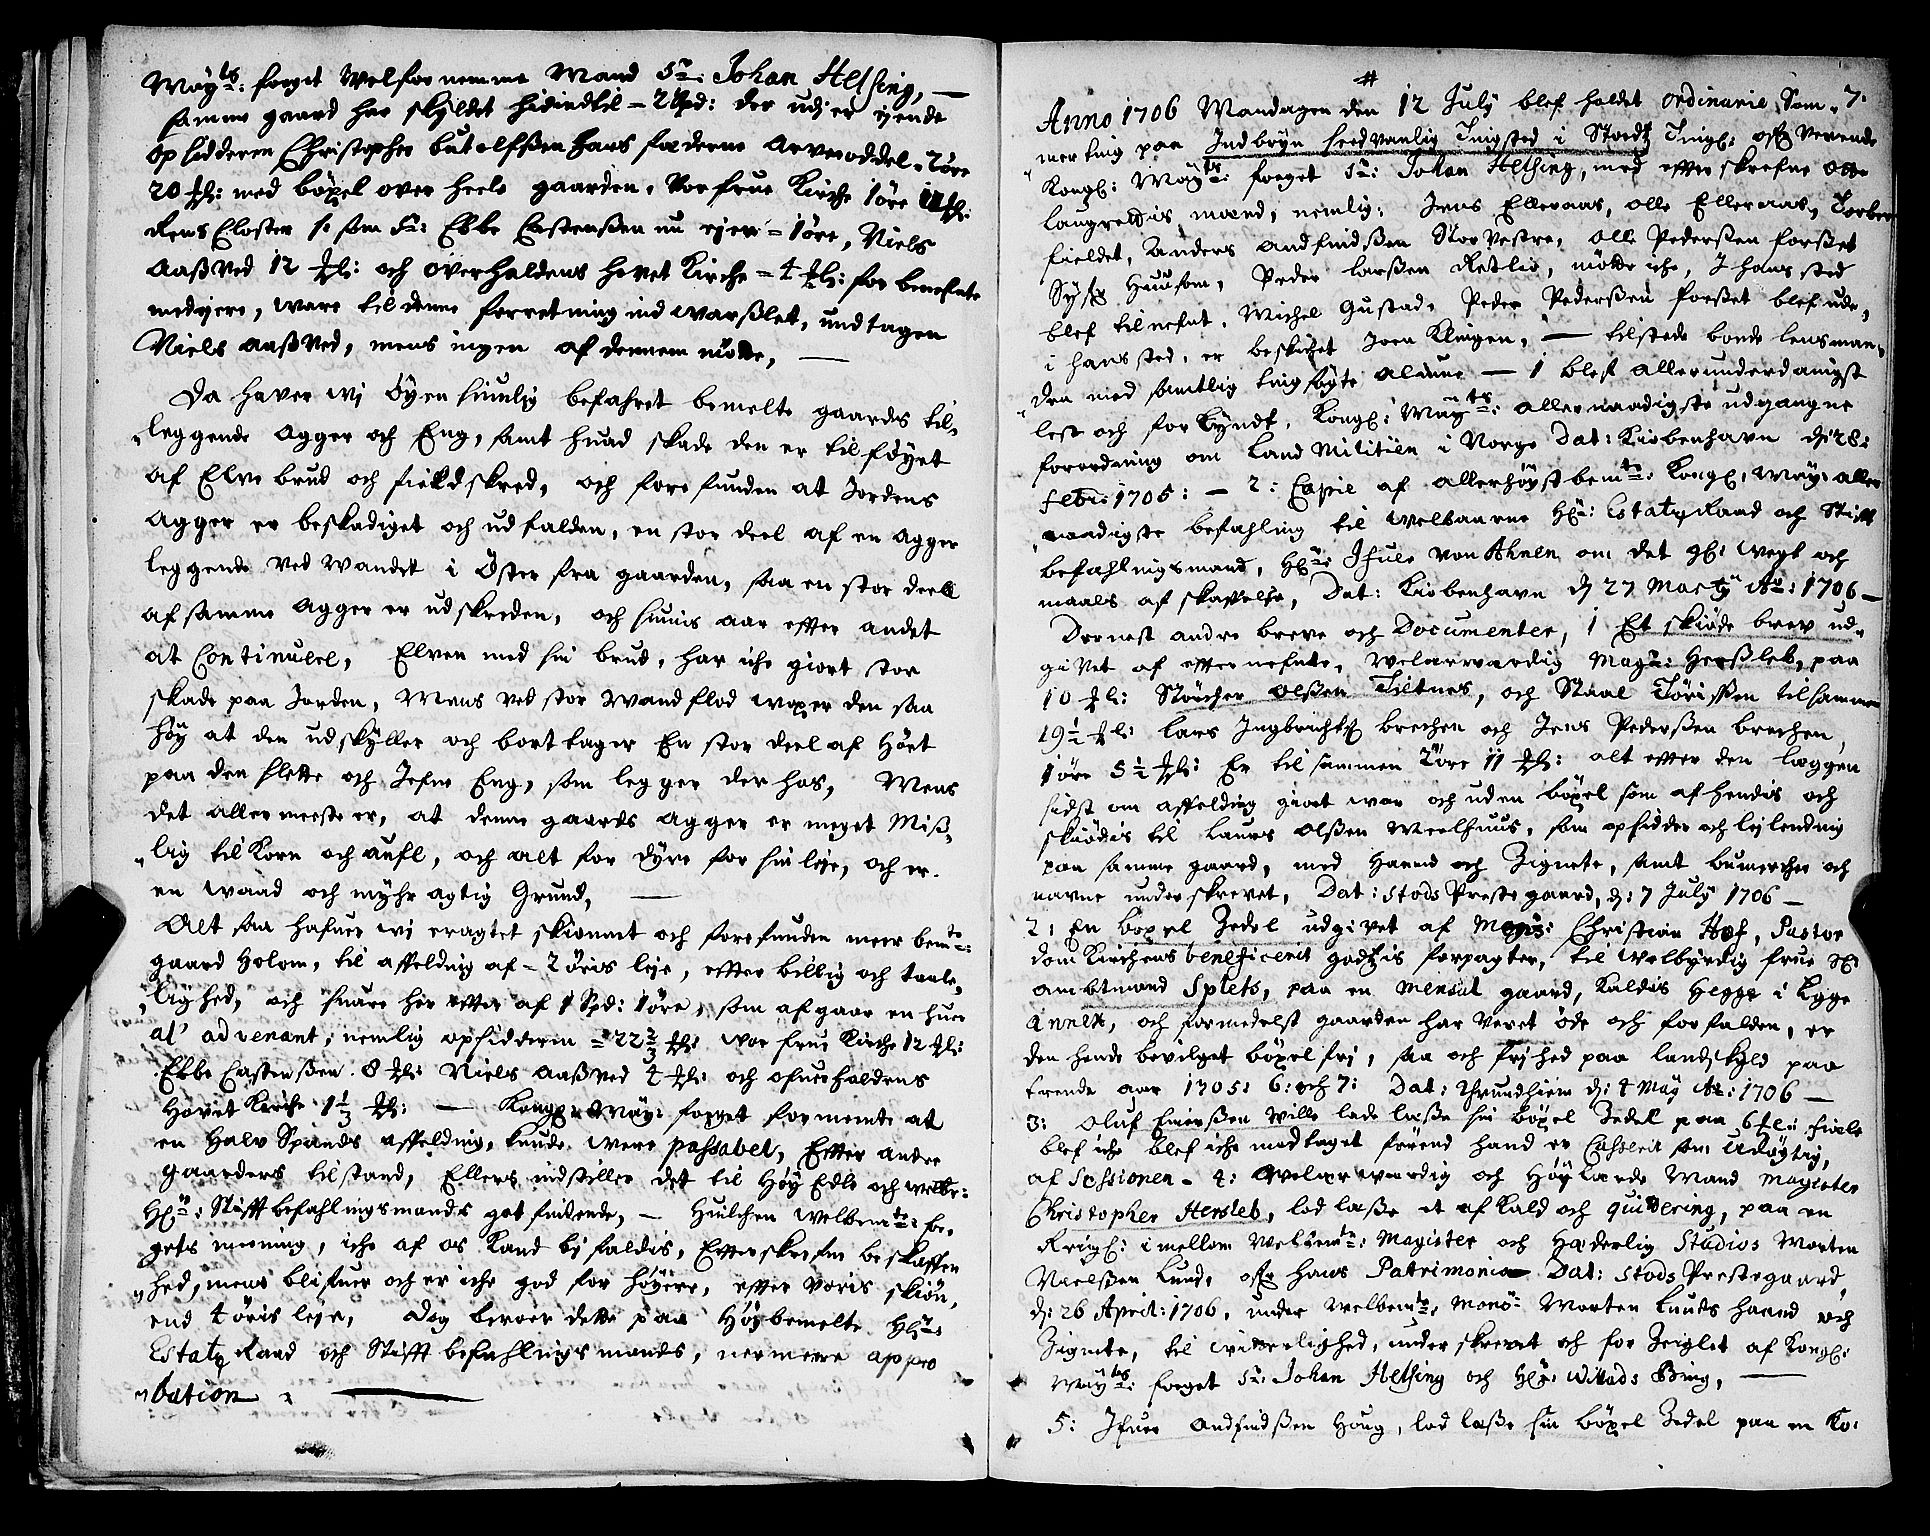 Mayts: foget Welfornemme Mand Sr: Johan Helsing, —
samme gaard har skyldet hidindtil – 2 Spd: der udj er ejende
opsidderen Christopher butolfsen hans faderne Arve oddel – 2 öre
20 ℔l: med böxel over heele gaarden, Vor frue Kirche 1 öre
Rens Closter som Sr: Ebbe Carstensen nu ejer – 1 öre, Niels
Aasved 12 ℔l: och overhaldens hovet Kirche – 4 ℔l: for benefnte
medejere, ware til denne forretning ind warslet, undtagen
Niels aasved, mens ingen af dennem mötte, —
Da haver wj öyensiunlig befahret bemelte gaards til-
leggende Agger och Eng, samt huad skade den er tilföyet
af Elve brud och fieldskred, och forefunden at Jordens
Agger er beskadiget och udfalden, en stor deel af en Agger
leggende ved Wandet i Öster fra gaarden, saa en stor deell
af samme Agger er udskreden, och siunis aar efter andet
at Continuere, Elven med sin brud, har iche giort stor
skade paa Jorden, Mens ved stor Wandflod voxer den saa
höy at den udskyller och bort tager En stor deel af Höet
paa den slette och Jefne Eng, som legger der hos, Mens
det allermeeste er, at denne gaards Agger er meget Mis-
lig til Korn och aufl, och alt for dyre for sin leje, och er
en waad och myhragtig Grund, —
Alt saa hafuer wj eragtet skionnet och forefunden meer bemte:
gaard Holom, til affelding af – 2 öris leje, efter billig och taale-
lighed, och suare her efter af 1 Spd: 1 öre, som afgaar en huer
al' advenant, nemlig opsidderen – 22 2/3 ℔l: vor frue Kirche 12 ℔l:
Ebbe Carstensen 8 ℔l: Niels aasved 4 ℔l: och ofuerhaldens
Hovet Kirche 1 1/3 ℔l: — Kongl: May: foget formeente at
en Halv Spands affelding, kunde were passabel, Efter andre
gaarders tilstand, Ellers indstiller det til Höy Edle och welb:
Hr: Stifft befahlingsmands gotfindende, — Huilchen welbemte: fo-
gets mening, iche af os Kand bifaldis, Efterskrefne beskaffen
hed, mens blifuer och er iche god for höyere, efter voris skiön,
end 4 öris leje, Dog beroer dette paa Höybemelte Hr:
Estatz Raad och Stifft befahlingsmands, nermere appro
bation. —
7.
Anno 1706 Mandagen den 12 July blef holdet ordinarie Som-
merting paa Indbryn sædvanlig Tingsted i Stords Tingl: ofver verende
Kongl: Mayts: foget Sr: Johan Helsing, med efterskrefne otte
laugrettis mænd, nemlig, Jens Elleraas, olle Elleraas, Torber
fieldet, Anders andfindsen Storvestre, olle Pedersen forset
Syfer Huusom, Peder larsen Retlio, mötte iche, J hans sted
blef tilnefnt, Michel Gustad, Peder Pedersen forset blef ude,
i hans sted, er beskichet Joen Klingen, — tilstede bonde lensman-
den med samtlig tingsögte almue — 1 blef allerunderdanigst
lest och forkyndt, Kongl: Mayts: allernaadigste udgangne
forordning om Land Militien i Norge Dat: Kiöbenhavn d: 28:
Febr: 1705: — 2: Copie af allerhöystbemte: Kongl: May: aller
naadigste befahling til welbaarne Hr: Estatz Raad och Stifft
befahlingsmand, Hr: Jfuer von Ahnen om det gl: vegt och
maals afskaffelse, Dat: Kiöbenhavn d 27 Marty Ao: 1706 —
Dernest andre breve och Documenter, 1 Et skiöde brev ud-
givet af efternefnte, welærværdig Magr: Hersleb, paa
10 ℔l: Störcher olsen Tiltnes, och Staal Törissen tilsammen
19 1/2 ℔l: lars Jngbrichts brechen och Jens Pedersen brechen,
1 öre 5 1/2 ℔l: Er tilsammen 2 öre 11 ℔l: alt efter den læggen
sidst om affelding giort war och uden böxel som afhendis och
skiödis til Laurs olsen Weelhuus, som opsidder och lejlending
paa samme gaard, med Haand och Zignete, samt bumercher och
navne underskrevet, Dat: Stods Prestegaard, d: 7 July 1706 —
2: En böxel Zedel udgivet af Monsr: Christian Hof, Pastor
dom Kirchens beneficerit godtzis forpagter, til velbyrdig frue Sl:
ambtmand Splets, paa en Mensal gaard, Kaldis Hegge i Egge
Annex, och formedelst gaarden har veret öde och forfalden, er
den hende bevilget böxelfri, saa och frjhed paa landskyld paa
trende aar 1705: 6: och 7: Dat: Thrundhiem d: 4 May Ao: 1706 —
3: Oluf Einersen wille lade læse sin böxel Zedel paa 6 ℔l: fierle
blef iche blef iche modtaget förend hand er Casserit som Udögtig,
af Sessionen – 4: Welærværdig och Höylærde Mand Magister
Christopher Hersleb, lod læse et afkald och quittering, paa en
Rrigl: imellom Welbemte: Magister och Hæderlig Studios Morten
Nielsen Lund, ofr hans Patrimonie Dat: Stods Prestegaard,
d: 26 April: 1706, under Welbemte: Monsr: Morten Lunds haand och
Zignete, til vitterlighed, underskrevet och forzeiglet af Kongl:
Mayts: foget Sr: Johan Helsing och Hr: Willads Bing, —
5: Jfuer Andfindsen Houg, lod læse sin böxel Zedel paa en Ko: